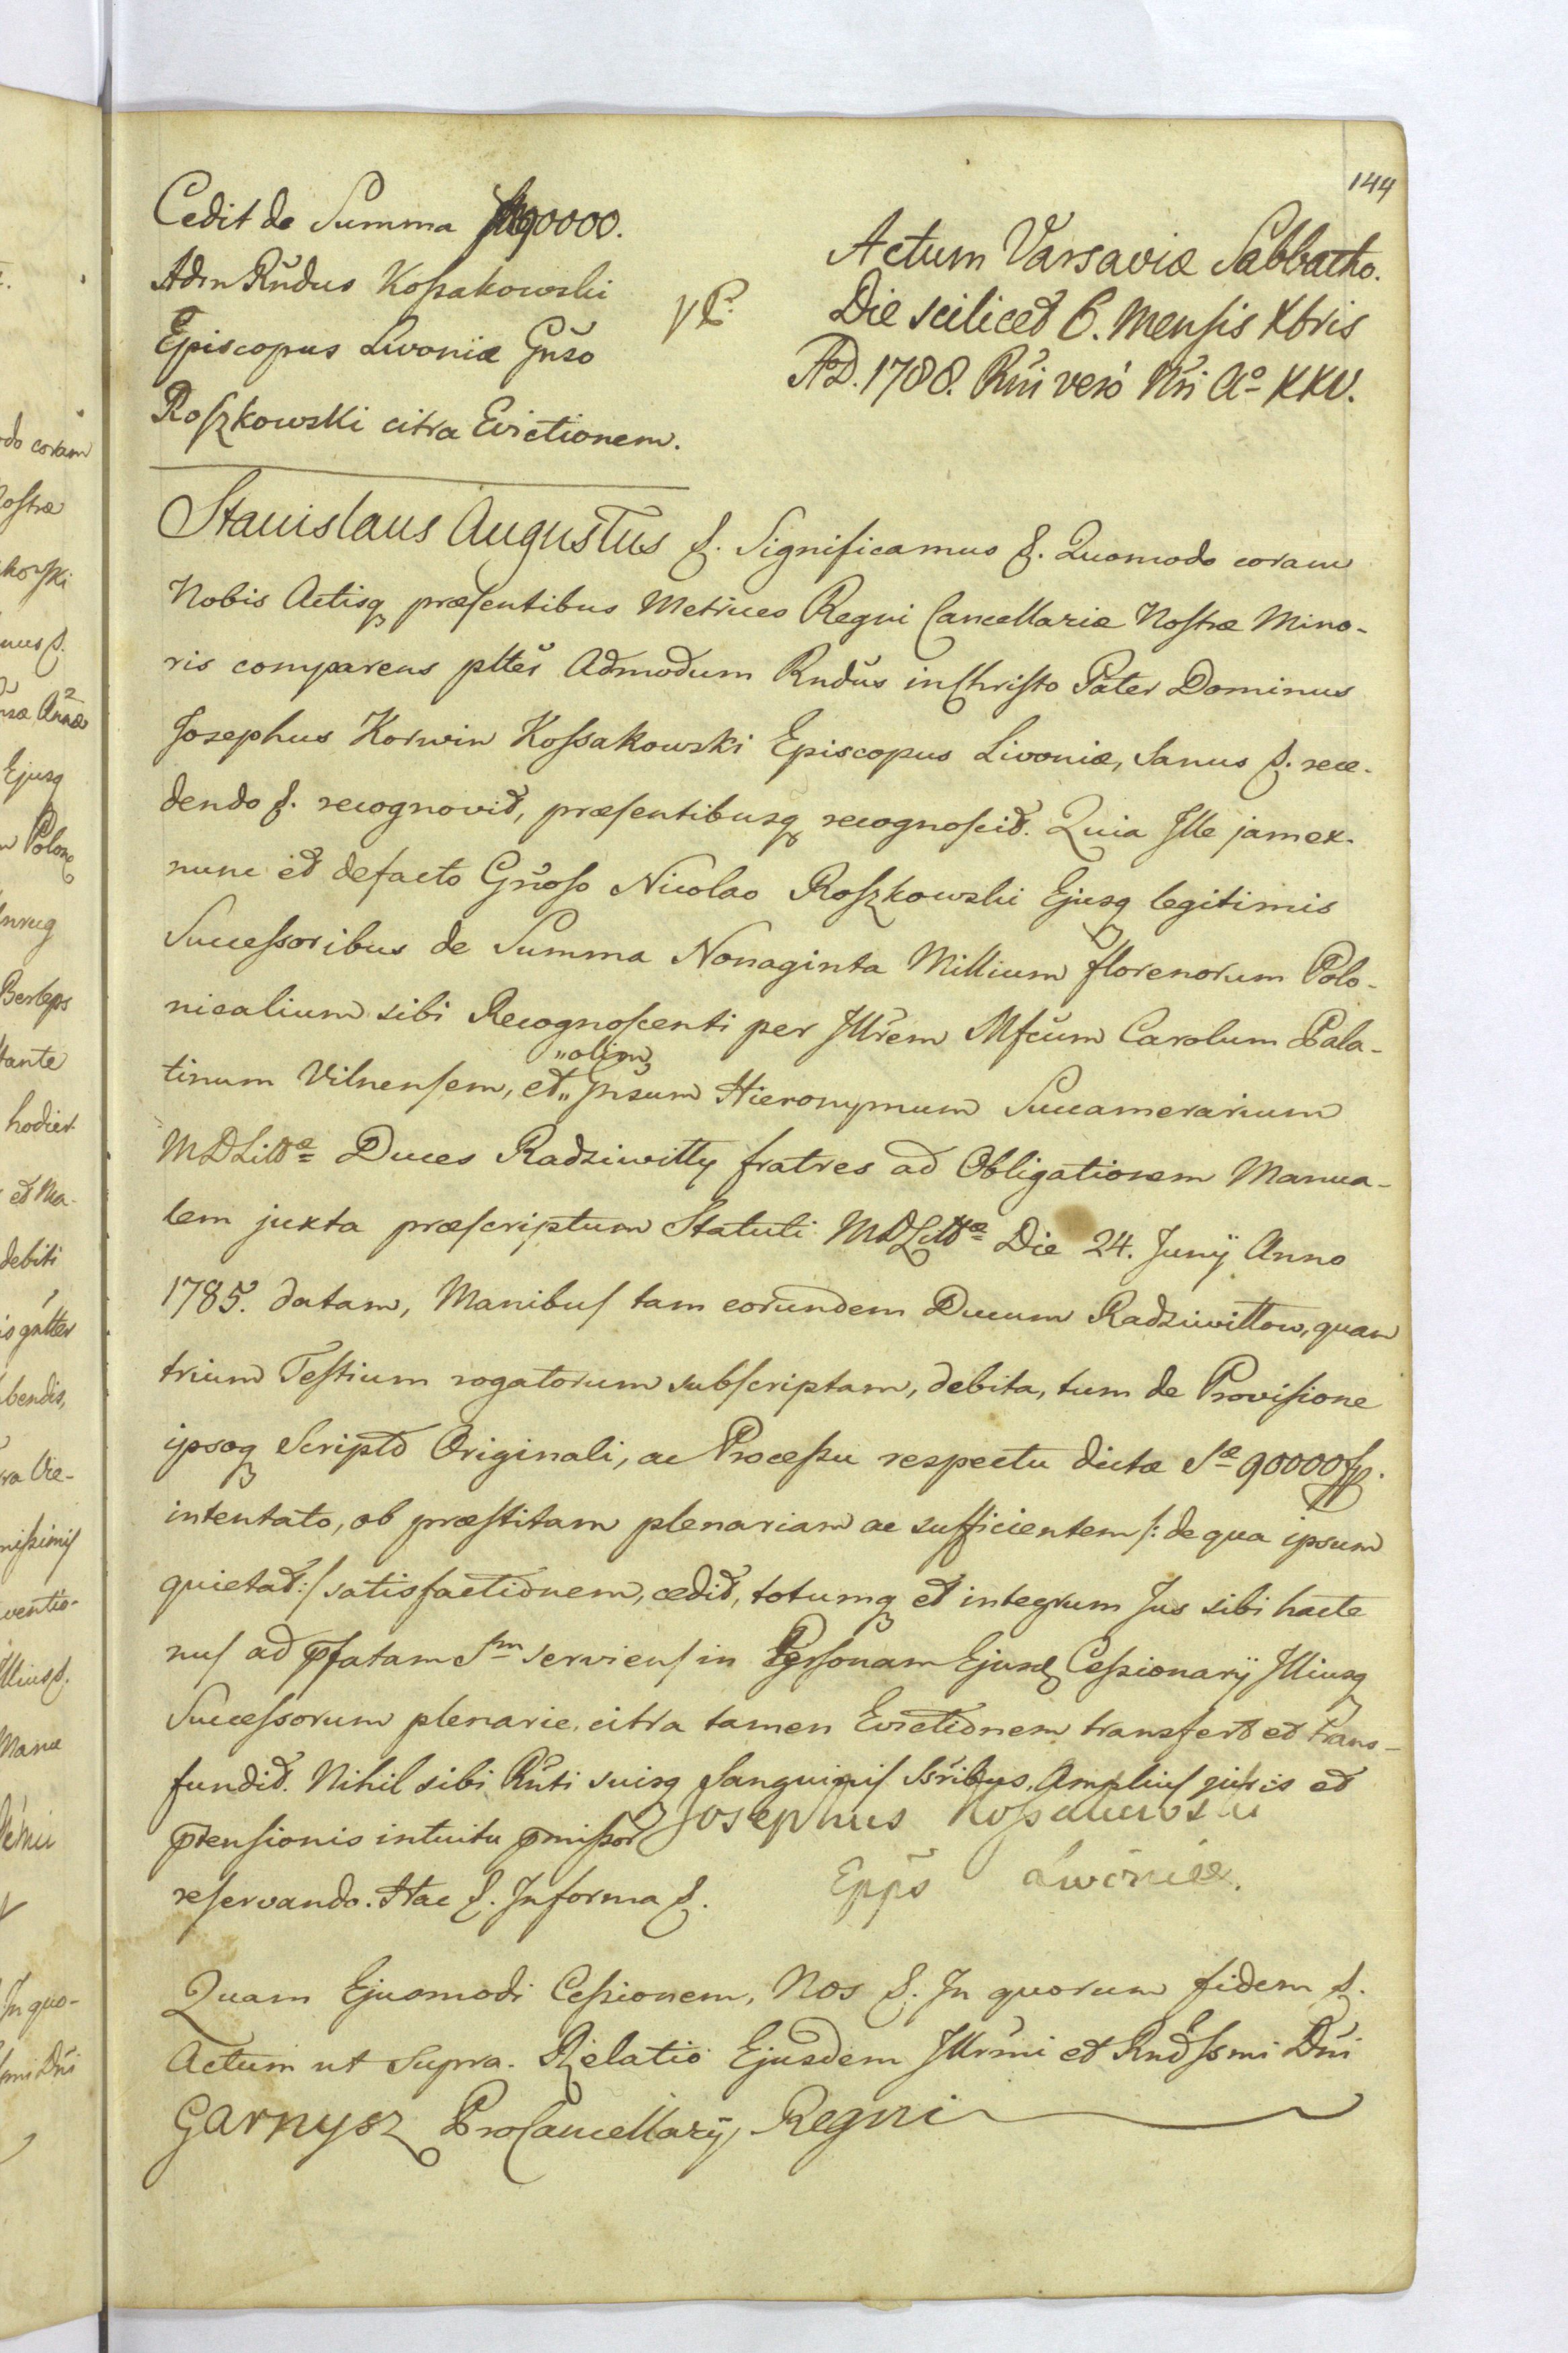 144
Cedit de Summa 90000.
Adm Rñdus Kossakowski
Episcopus Livoniæ Gñso
Roszkowski citra Evictionem.
Actum Varsaviæ Sabbatho.
Die scilicet 6. Mensis Xbris
AD. 1788. Rñi vero Nri Aº XXV.
Stanislaus Augustus &. Significamus &. Quomodo coram
Nobis Actisq præsentibus Metrices Regni Cancellariæ Nostræ Mino-
ris comparens pltěr Admodum Rndũs in Christo Pater Dominus
Josephus Korwin Kossakowski Episcopus Livoniæ, Sanus &. rece-
dendo &. recognovit, præsentibusq recognoscit. Quia Ille jam ex-
nunc et defacto Gñoso Nicolao Roszkowski Ejusq legitimis
Successoribus de Summa Nonaginta Millium florenorum Polo-
nicalium sibi Recognoscenti per Illrem Mfcum Carolum Pala-
tinum Vilnensem, et „olim„ Gñsum Hieronymum Succamerarium
MDLittæ Duces Radziwiłły fratres ad Obligationem Manua-
lem juxta præscriptum Statuti MDLittæ Die 24. Junÿ Anno
1785. datam, Manibus tam eorundem Ducum Radziwiłłow, quam
trium Testium rogatorum subscriptam, debita, tum de Provisione
ipsoq Scripto Originali, ac Processu respectu dictæ Sæ 90000 fp.
intentato, ob præstitam plenariam ac sufficientem /: de qua ipsum
quietat :/ satisfactionem, cedit, totumq et integrum Jus sibi hacte
nus ad pfatam Sm serviens in Personam Ejusd Cessionarÿ Illiusq
Successorum plenarie, citra tamen Evictionem transfert et trans-
fundit. Nihil sibi Rñti suisq Sanguinis Ssribus, Amplius juris et
ptensionis intuitu pmissor
reservando. Hac &. In forma &.
Josephus Kossakowski
Epps Livoniæ.
Quam Ejusmodi Cessionem, Nos &. In quorum fidem &.
Actum ut Supra. Relatio Ejusdem Illrmi et Rndssmi Dñi
Garnysz ProCancellarÿ Regni